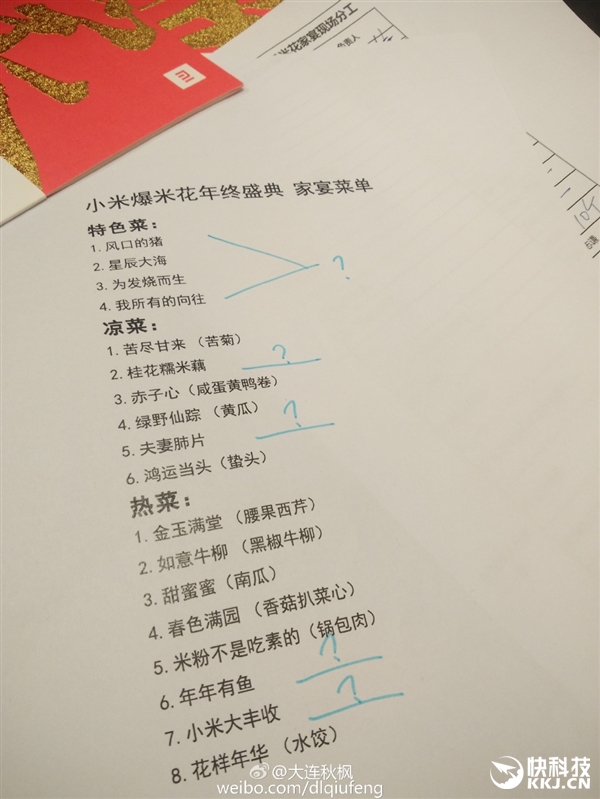 米花家宴现场分工
负责人
小米爆米花年终盛典 家宴菜单
特色菜：
1. 风口的猪
2. 星辰大海
3. 为发烧而生
4. 我所有的向往
?
凉菜：
1. 苦尽甘来 （苦菊）
2. 桂花糯米藕 ?
3. 赤子心（咸蛋黄鸭卷）
4. 绿野仙踪 （黄瓜）
5. 夫妻肺片 ?
6. 鸿运当头（蛰头）
热菜：
1. 金玉满堂 （腰果西芹）
2. 如意牛柳 （黑椒牛柳）
3. 甜蜜蜜（南瓜）
4. 春色满园 （香菇扒菜心）
5. 米粉不是吃素的（锅包肉）
6. 年年有鱼 ?
7. 小米大丰收 ?
8. 花样年华 （水饺）
@大连秋枫
weibo.com/dlqiufeng
快科技
KKJ.CN